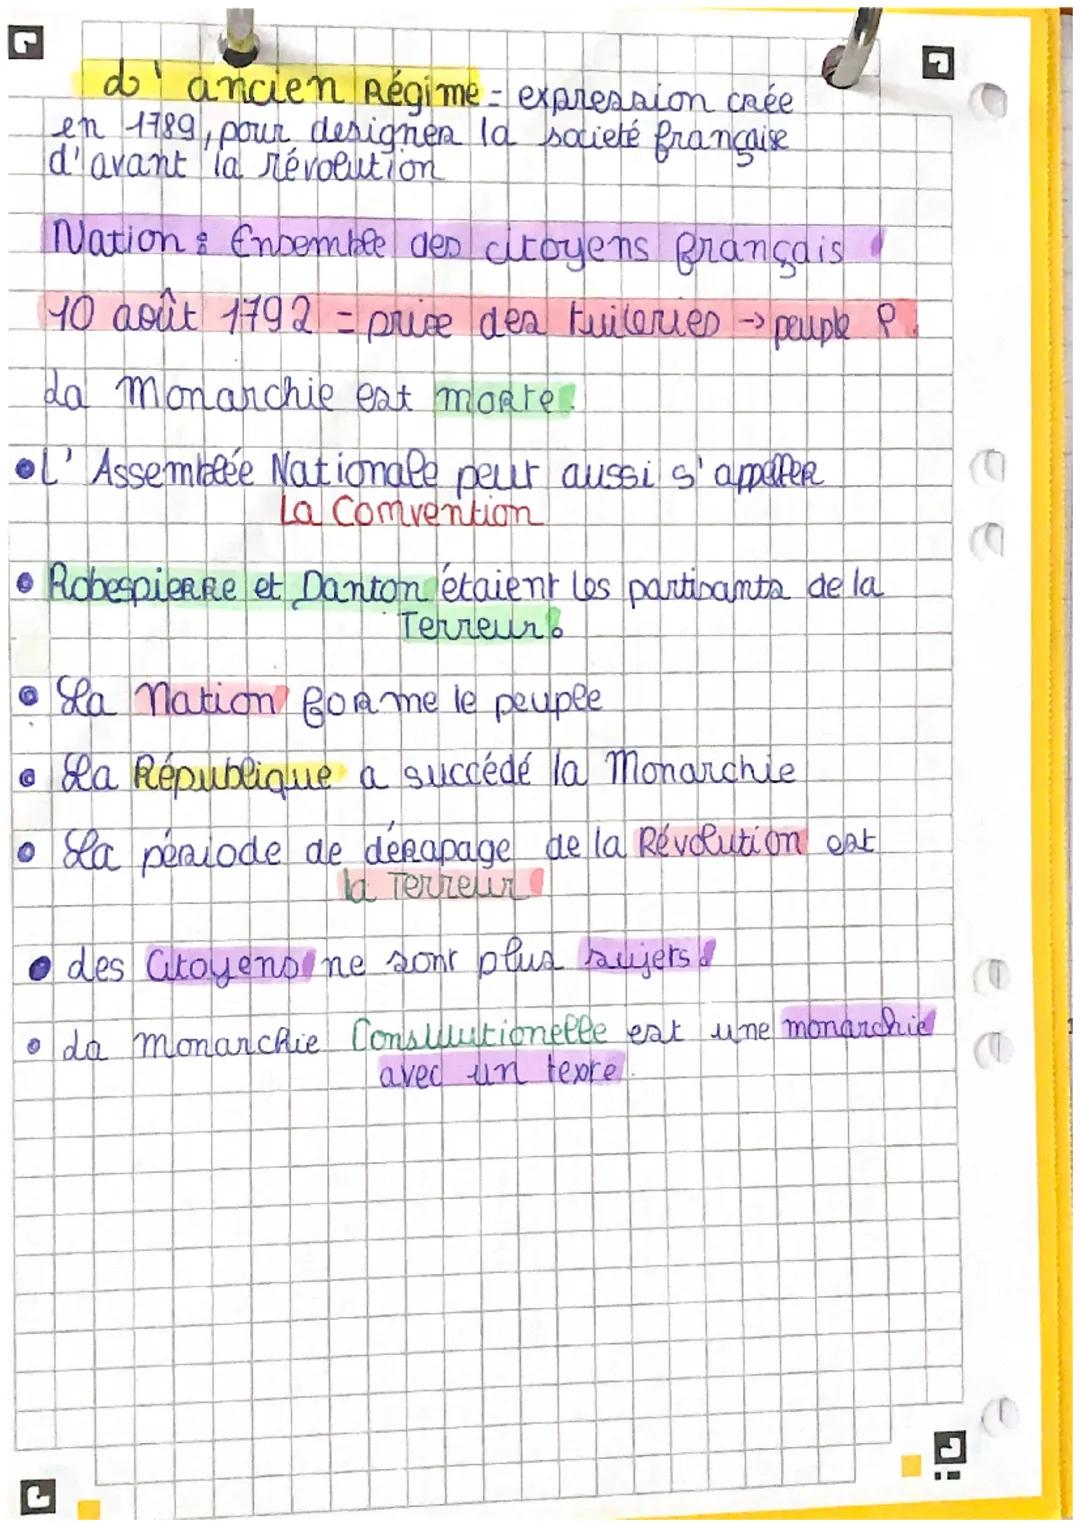 L'ancien Régime = expression crée
en 1789, pour designer la societé française
d'avant la révolution
Nation : Ensemble des citoyens français
10 août 1792 = prise des tuileries → peuple P.
La Monarchie est morte.
• L'Assemblée Nationale peut aussi s'appeller
La Convention
• Robespierre et Danton étaient les partisants de la
Terreur.
• La Nation forme le peuple
• La République a succédé la Monarchie
• La période de dérapage de la Révolution est
la Terreur
• Les Citoyens ne sont plus sujets.
• La monarchie Constitutionelle est une monarchie
avec un texte.